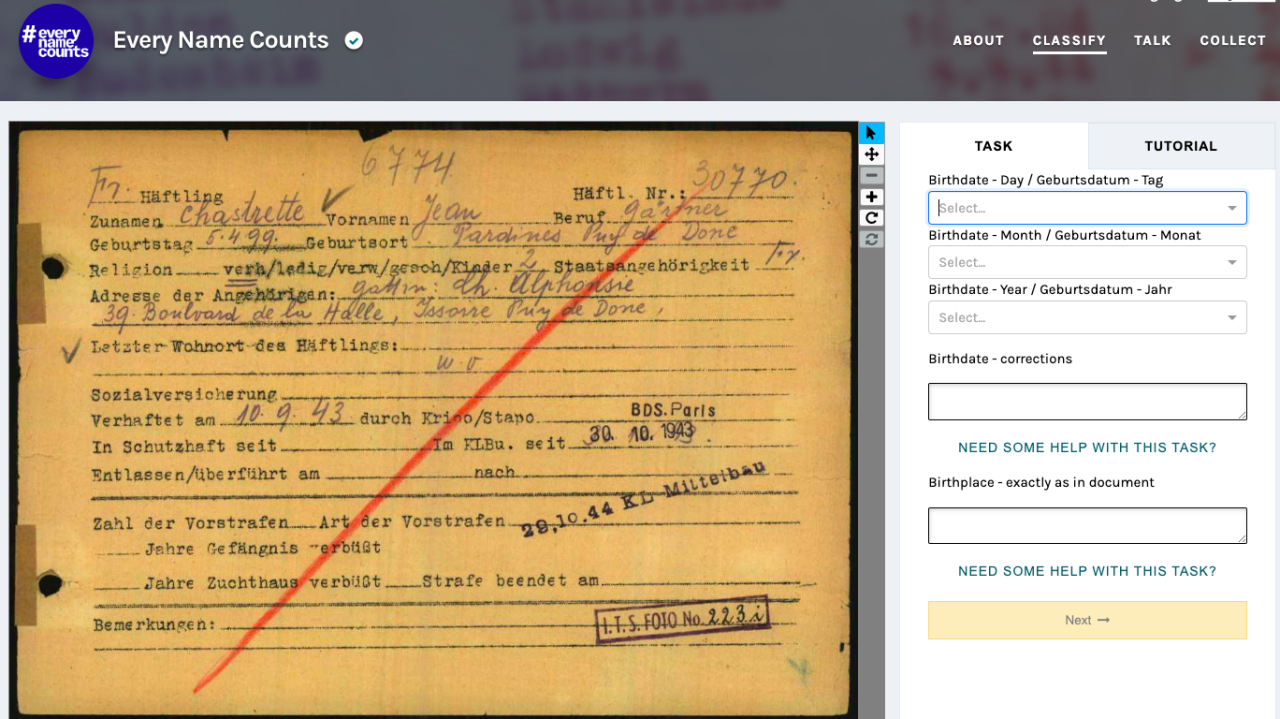 #every name counts
Every Name Counts
ABOUT CLASSIFY TALK COLLECT
6774
Fr. Häftling Häftl. Nr.: 30770.
Zunamen Chastrette Vornamen Jean Beruf Gärtner
Geburtstag 5.4.99. Geburtsort Pardines Puy de Done
Religion verh/ledig/verw/gesch/Kinder 2 Staatsangehörigkeit Fr.
Adresse der Angehörigen: Gattin: Ch. Alphonsie
39. Boulvard de la Halle, Issoire Puy de Done,
Letzter Wohnort des Häftlings:
w.o
Sozialversicherung
Verhaftet am 10.9.43 durch Kripo/Stapo BDS.Paris
In Schutzhaft seit Im KLBu. seit 30. 10. 1943.
Entlassen/überführt am nach
29.10.44 KL Mittelbau
Zahl der Vorstrafen Art der Vorstrafen
Jahre Gefängnis verbüßt
Jahre Zuchthaus verbüßt Strafe beendet am
Bemerkungen:
I.T.S. FOTO No. 223 i
TASK TUTORIAL
Birthdate - Day / Geburtsdatum - Tag
Select...
Birthdate - Month / Geburtsdatum - Monat
Select...
Birthdate - Year / Geburtsdatum - Jahr
Select...
Birthdate - corrections
NEED SOME HELP WITH THIS TASK?
Birthplace - exactly as in document
NEED SOME HELP WITH THIS TASK?
Next →